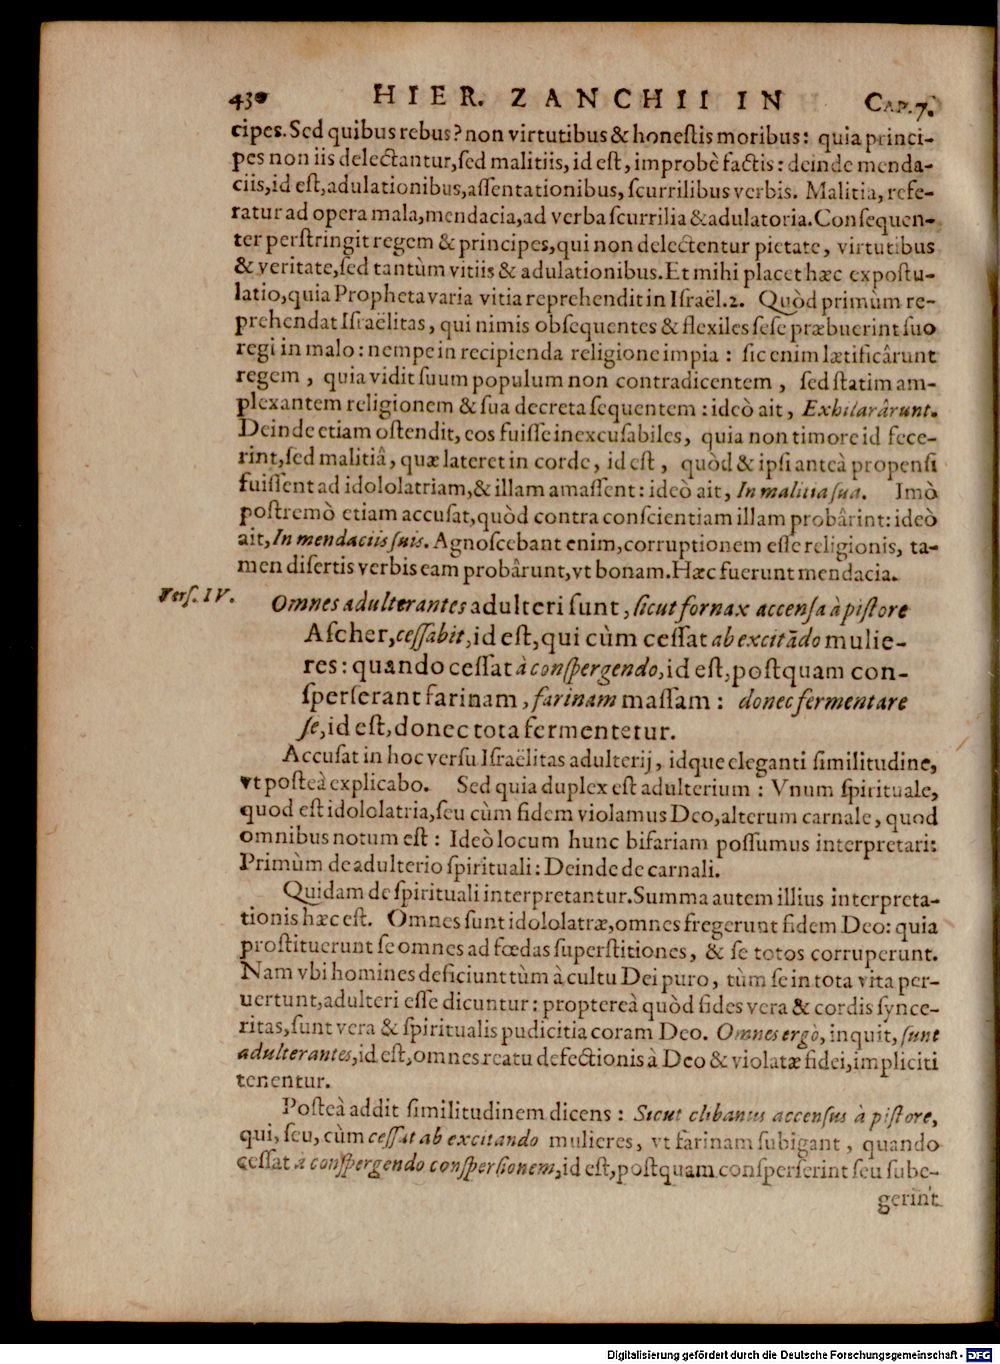 430 HIER. ZANCHII IN CAP. 7.
cipes. Sed quibus rebus? non virtutibus & honestis moribus: quia princi-
pes non iis delectantur, sed malitiis, id est, improbè factis: deinde menda-
ciis, id est, adulationibus, assentationibus, scurrilibus verbis. Malitia, refe-
ratur ad opera mala, mendacia, ad verba scurrilia & adulatoria. Consequen-
ter perstringit regem & principes, qui non delectentur pietate, virtutibus
& veritate, sed tantùm vitiis & adulationibus. Et mihi placet hæc expostu-
latio, quia Propheta varia vitia reprehendit in Israël. 2. Quòd primùm re-
prehendat Israëlitas, qui nimis obsequentes & flexiles sese præbuerint suo
regi in malo: nempe in recipienda religione impia: sic enim lætificârunt
regem, quia vidit suum populum non contradicentem, sed statim am-
plexantem religionem & sua decreta sequentem: ideò ait, Exhilarârunt.
Deinde etiam ostendit, eos fuisse inexcusabiles, quia non timore id fece-
rint, sed malitiâ, quæ lateret in corde, id est, quòd & ipsi anteà propensi
fuissent ad idololatriam, & illam amassent: ideò ait, In malitia sua. Imò
postremò etiam accusat, quòd contra conscientiam illam probârint: ideò
ait, In mendaciis suis. Agnoscebant enim, corruptionem esse religionis, ta-
men disertis verbis eam probârunt, vt bonam. Hæc fuerunt mendacia.
Vers. IV. Omnes adulterantes adulteri sunt, sicut fornax accensa à pistore
Ascher, cessabit, id est, qui cùm cessat ab excitãdo mulie-
res: quando cessat à conspergendo, id est, postquam con-
sperserant farinam, farinam massam: donec fermentare
se, id est, donec tota fermentetur.
Accusat in hoc versu Israëlitas adulterij, idque eleganti similitudine,
vt posteà explicabo. Sed quia duplex est adulterium: Vnum spirituale,
quod est idololatria, seu cùm fidem violamus Deo, alterum carnale, quod
omnibus notum est: Ideò locum hunc bifariam possumus interpretari:
Primùm de adulterio spirituali: Deinde de carnali.
Quidam de spirituali interpretantur. Summa autem illius interpreta-
tionis hæc est. Omnes sunt idololatræ, omnes fregerunt fidem Deo: quia
prostituerunt se omnes ad fœdas superstitiones, & se totos corruperunt.
Nam vbi homines deficiunt tùm à cultu Dei puro, tùm se in tota vita per-
uertunt, adulteri esse dicuntur: proptereà quòd fides vera & cordis synce-
ritas, sunt vera & spiritualis pudicitia coram Deo. Omnes ergò, inquit, sunt
adulterantes, id est, omnes reatu defectionis à Deo & violatæ fidei, impliciti
tenentur.
Posteà addit similitudinem dicens: Sicut clibanus accensus à pistore,
qui, seu, cùm cessat ab excitando mulieres, vt farinam subigant, quando
cessat à conspergendo conspersionem, id est, postquam consperserint seu sube-
gerint
Digitalisierung gefördert durch die Deutsche Forschungsgemeinschaft - DFG